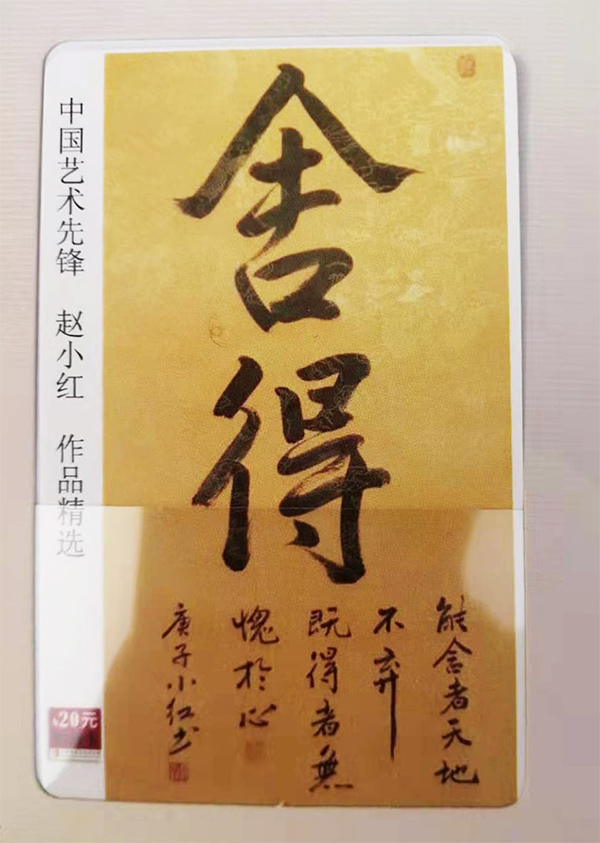 中国艺术先锋 赵小红 作品精选
舍得
能舍者天地
不弃
既得者無
愧於心
庚子小红书
20元